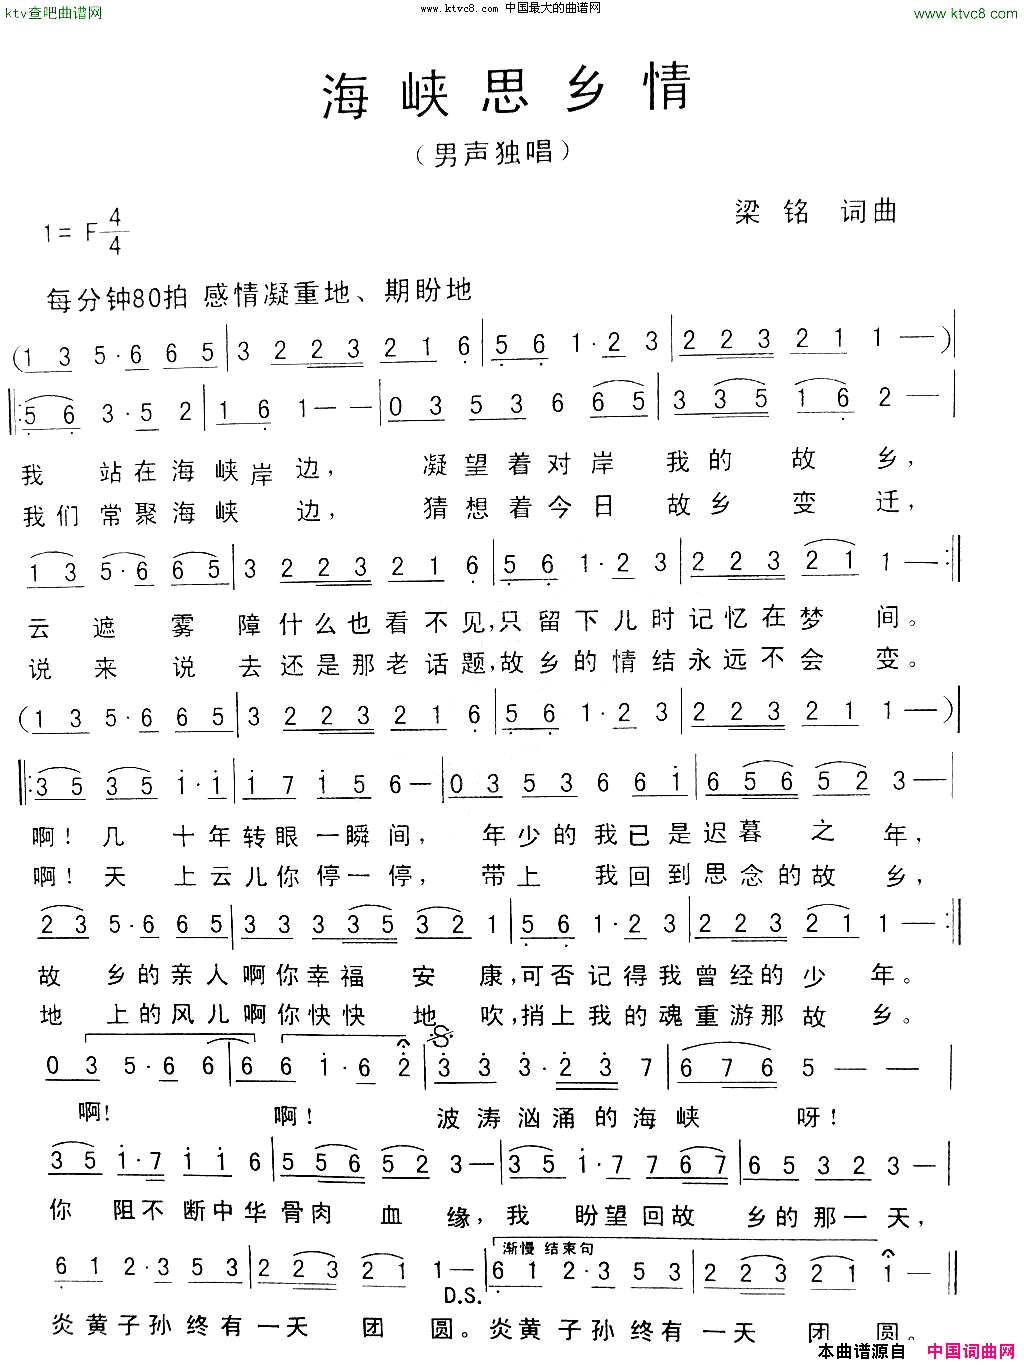 ktv查吧曲谱网
www.ktvc8.com 中国最大的曲谱网
www.ktvc8.com
海峡思乡情
（男声独唱）
梁铭 词曲
1= F 4/4
每分钟80拍 感情凝重地、期盼地
(1 3 5·6 6 5|3 2 2 3 2 1 6|5 6 1·2 3|2 2 3 2 1 1 —)|
‖:5 6 3·5 2|1 6 1 — —|0 3 5 3 6 6 5|3 3 5 1 6 2 —|
我 站在海峡岸边，凝望着对岸我的故乡，
我们常聚海峡边，猜想着今日故乡变迁，
1 3 5·6 6 5|3 2 2 3 2 1 6|5 6 1·2 3|2 2 3 2 1 1 —:‖
云遮雾障什么也看不见,只留下儿时记忆在梦间。
说来说去还是那老话题,故乡的情结永远不会变。
(1 3 5·6 6 5|3 2 2 3 2 1 6|5 6 1·2 3|2 2 3 2 1 1 —)|
‖:3 5 3 5 1·1|1 7 1 5 6 —|0 3 5 3 6 6 1|6 5 6 5 2 3 —|
啊！几十年转眼一瞬间，年少的我已是迟暮之年，
啊！天上云儿你停一停，带上我回到思念的故乡，
2 3 5·6 6 5|3 3 3 3 5 3 2 1|5 6 1·2 3|2 2 3 2 1 1 —:‖
故乡的亲人啊你幸福安康,可否记得我曾经的少年。
地上的风儿啊你快快地吹,捎上我的魂重游那故乡。
0 3 5·6 6|6 6 1·6 2|3 3 3·2 3 7|6 7 6 5 — —|
啊！啊！波涛汹涌的海峡呀！
3 5 1·7 1 1 6|5 5 6 5 5 2 3 —|3 5 1·7 7 6 7|6 5 3 2 3 3 —|
你阻不断中华骨肉血缘，我盼望回故乡的那一天，
渐慢 结束句
6 1 2·3 5 3|2 2 3 2 1 1 —|6 1 2·3 5 3|2 2 3 2 1 1 —|
D.S.
炎黄子孙终有一天团圆。炎黄子孙终有一天团圆。
本曲谱源自 中国词曲网